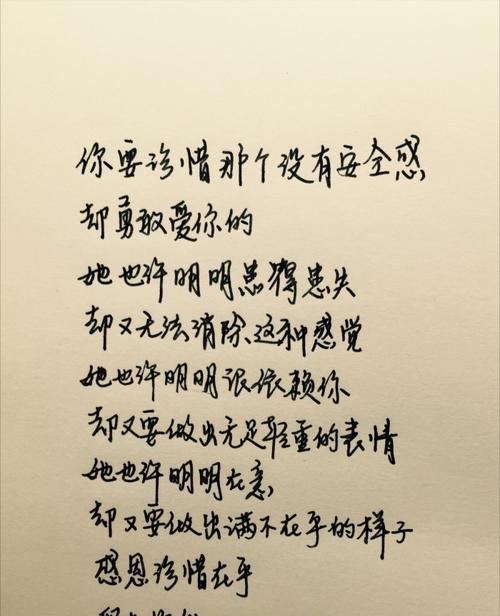 你要珍惜那个没有安全感
却勇敢爱你的
她也许明明患得患失
却又无法消除这种感觉
她也许明明很依赖你
却又要做出无足轻重的表情
她也许明明在意
却又要做出满不在乎的样子
感恩珍惜在乎